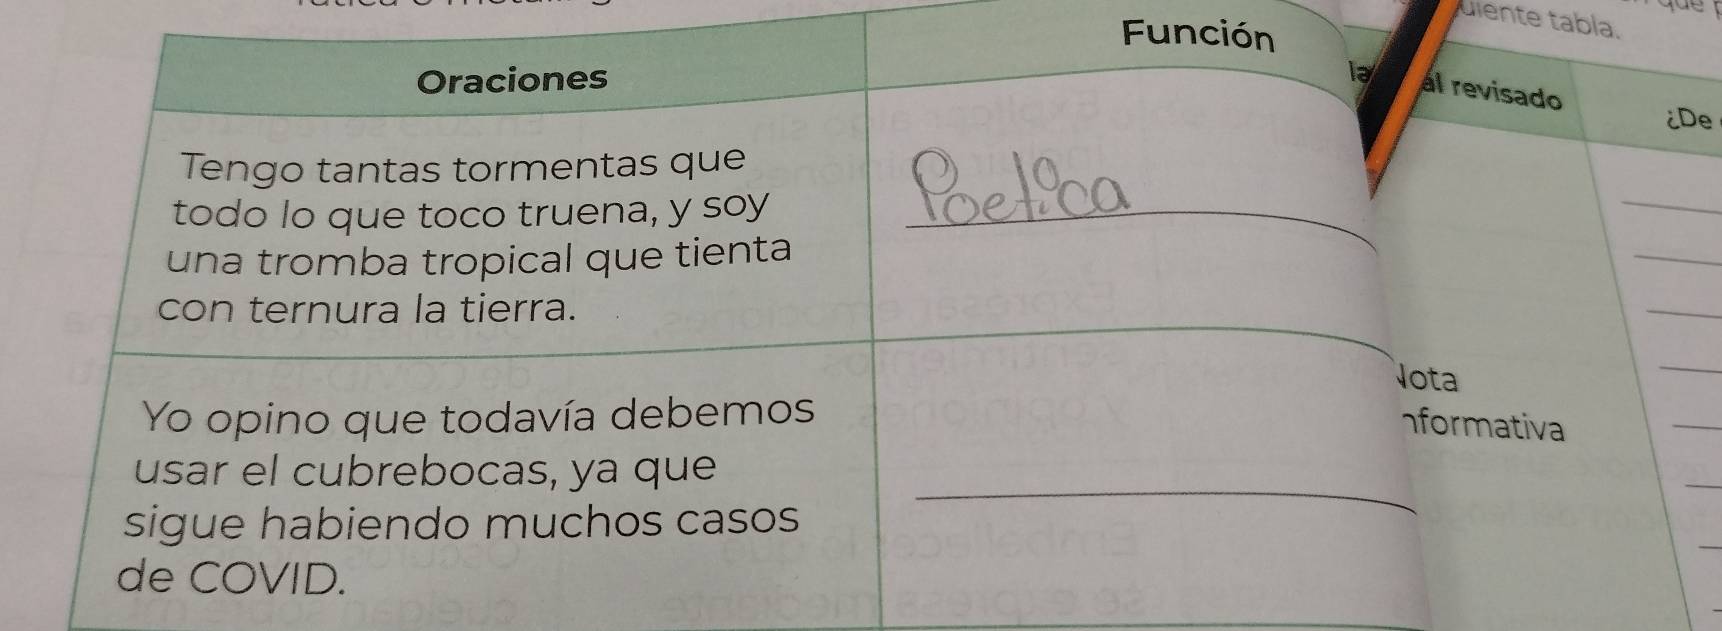 uiente tabla.
Oraciones
Función
al revisado
¿De
Tengo tantas tormentas que
todo lo que toco truena, y soy
una tromba tropical que tienta
con ternura la tierra.
Poética
Yo opino que todavía debemos
usar el cubrebocas, ya que
sigue habiendo muchos casos
de COVID.
Nota
nformativa